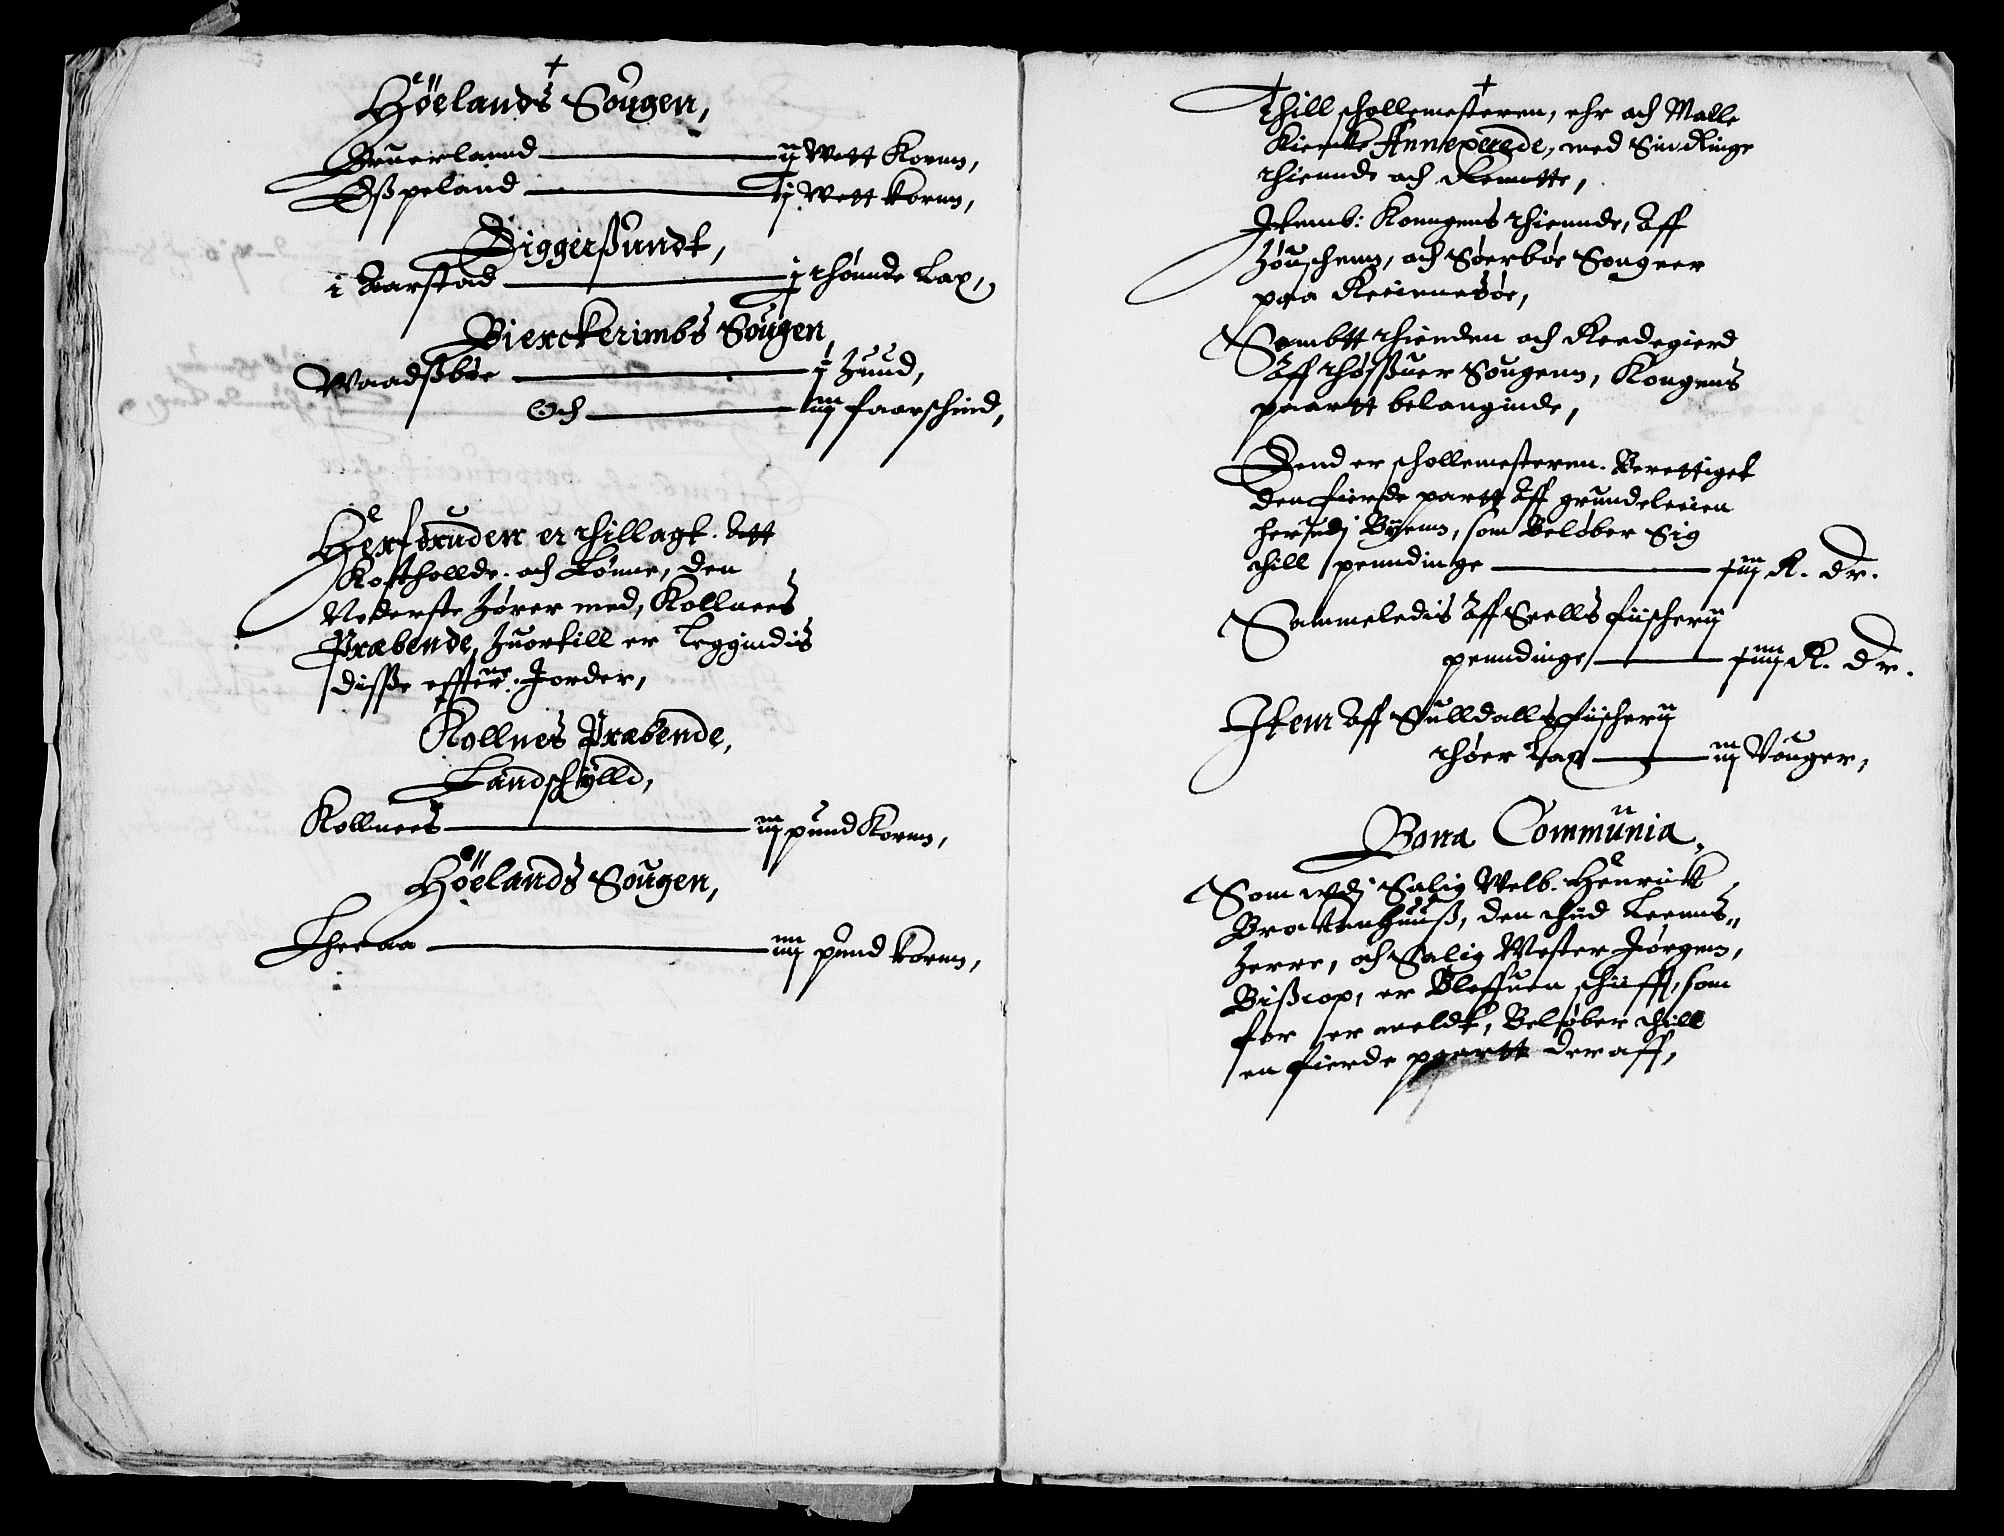 Höelands Sougen,
Huerlannd — ij Wett Kornn,
Eßpeland — j Wett kornn,
Diggerßundt,
i Aarstad — j thønnde Lax,
Bierckerimbs Sougen,
Waadßbøe — j Huud,
Och — iiij faarschind,
Hørforuden er thillagt. Att
Kosthollde. och Lønne, den
Nederste Hører med, Kollnees
Præbende, Huortill er Leggindis
disse effter: Jorder,
Kollnes Præbende,
Landschylld,
Kollnees — iiij pund Kornn,
Höelands Sougen,
Theraa — iiij pund kornn,
Thill schollemesteren, ehr och Malle
Kiercke Annexerede, med Sin Ringe
thiennde och Rentte,
Jtemb: Konngens thiennde, Aff
Houschenn, och Søerbøe Sougner
paa Reiennesøe,
Sambtt thienden och Reedegierd
Aff thøßuer Sougenn, Kongens
paartt belanginde,
Dend er schollemesteren. Berettiget
den fierde partt Aff grundeleien
her udj Byenn, som Beløber Sig
thill penndinge — R. dr.
Sammeledis Aff Seells fiischerij
penndinge — R. dr.
Jtem Aff Sulldalls fiischerij
thøer Lax — iiij Vouger,
Bona Communia,
Som wdj Salig Welb. Henrick
Brockenhuuß, den thid Leenns-
Herre, och Salig Mester Jørgenn,
Bißcop, er Bleffuen schiifft, som
før er meldt, Beløber thill
en fierde paartt der aff,